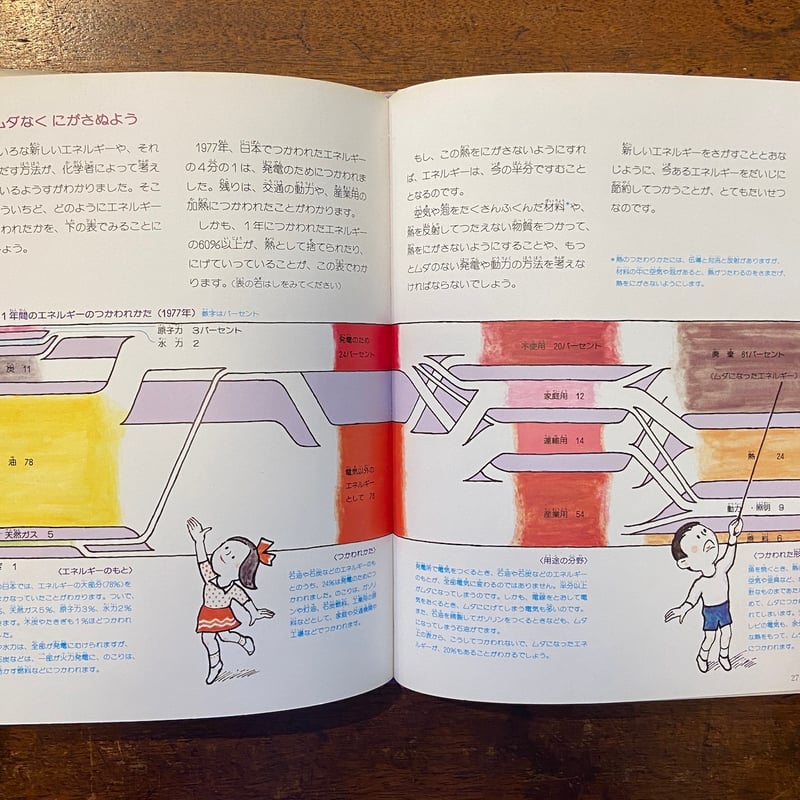 ムダなく にがさぬよう
いろな新しいエネルギーや、それ
だす方法が、化学者によって考え
いるようすがわかりました。そこ
ういちど、どのようにエネルギー
われたかを、下の表でみることに
よう。
1977年、日本でつかわれたエネルギー
の4分の1は、発電のためにつかわれま
した。残りは、交通の動力や、産業用の
加熱につかわれたことがわかります。
しかも、1年につかわれたエネルギー
の60%以上が、熱として捨てられたり、
にげていっていることが、この表でわか
ります。(表の右はしをみてください)
もし、この熱をにがさないようにすれ
ば、エネルギーは、今の半分ですむこと
となるのです。
空気や泡をたくさんふくんだ材料*や、
熱を反射してつたえない物質をつかって、
熱をにがさないようにすることや、もっ
とムダのない発電や動力の方法を考えな
ければならないでしょう。
新しいエネルギーをさがすこととおな
じように、今あるエネルギーをだいじに
節約してつかうことが、とてもたいせつ
なのです。
*熱のつたわりかたには、伝導と対流と反射がありますが、
材料の中に空気や泡があると、熱がつたわるのをさまたげ、
熱をにがさないようにします。
1年間のエネルギーのつかわれかた (1977年) 数字はパーセント
原子力 3パーセント
水力 2
炭 11
油 78
天然ガス 5
1
発電のため
24パーセント
電気以外の
エネルギー
として 76
不使用 20パーセント
家庭用 12
運輸用 14
産業用 54
廃棄 61パーセント
(ムダになったエネルギー)
熱 24
動力・照明 9
原料 6
〈エネルギーのもと〉
の日本では、エネルギーの大部分(78%)を
まかなっていたことがわかります。ついで、
天然ガス5%、原子力3%、水力2%
木炭やたきぎも1%ほどつかわれ
した。
や水力は、全部が発電にむけられますが、
石炭などは、一部が火力発電に、のこりは、
動かす燃料などにつかわれます。
〈つかわれかた〉
石油や石炭などのエネルギーのも
とのうち、24%は発電のためにつ
かわれました。のこりは、ガソリ
ンや灯油、石炭燃料、工業用の原
料などとして、家庭や交通機関や
工場などでつかわれます。
〈用途の分野〉
発電所で電気をつくるとき、石油や石炭などのエネルギー
のもとが、全部電気に変わるのではありません。半分以上
がムダになってしまうのです。しかも、電線をとおして電
気をおくるとき、ムダににげてしまう電気も多いのです。
また、石油を精製してガソリンをつくるときなども、ムダ
になってしまう石油がでます。
上の表から、こうしてつかわれないで、ムダになったエネ
ルギーが、20%もあることがわかるでしょう。
〈つかわれた形
27